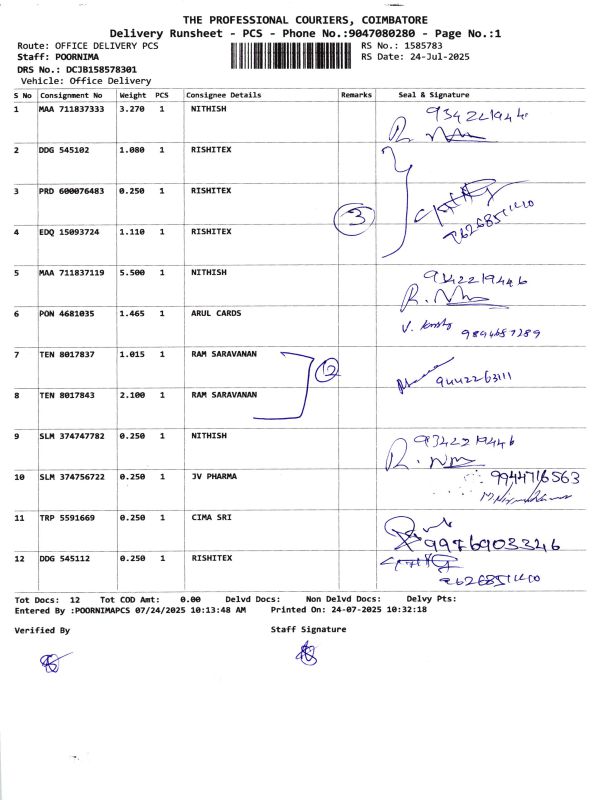 THE PROFESSIONAL COURIERS, COIMBATORE
Delivery Runsheet - PCS - Phone No.:9047080280 - Page No.:1
Route: OFFICE DELIVERY PCS RS No.: 1585783
Staff: POORNIMA RS Date: 24-Jul-2025
DRS No.: DCJB158578301
Vehicle: Office Delivery
S No Consignment No Weight PCS Consignee Details Remarks Seal & Signature
1 MAA 711837333 3.270 1 NITHISH
2 DDG 545102 1.080 1 RISHITEX
3 PRD 600076483 0.250 1 RISHITEX
3
4 EDQ 15093724 1.110 1 RISHITEX
5 MAA 711837119 5.500 1 NITHISH 9342219446
6 PON 4681035 1.465 1 ARUL CARDS
7 TEN 8017837 1.015 1 RAM SARAVANAN
2
8 TEN 8017843 2.100 1 RAM SARAVANAN
9 SLM 374747782 0.250 1 NITHISH 9342219446
10 SLM 374756722 0.250 1 JV PHARMA 9944716563
11 TRP 5591669 0.250 1 CIMA SRI 9976903346
12 DDG 545112 0.250 1 RISHITEX
Tot Docs: 12 Tot COD Amt: 0.00 Delvd Docs: Non Delvd Docs: Delvy Pts:
Entered By :POORNIMAPCS 07/24/2025 10:13:48 AM Printed On: 24-07-2025 10:32:18
Verified By Staff Signature